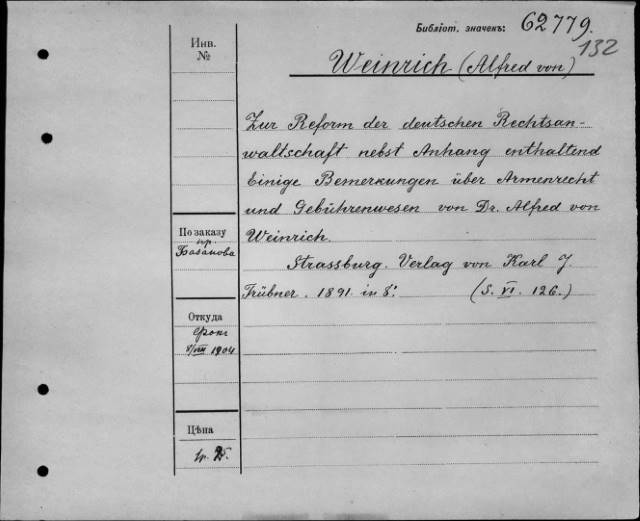 Библіот. значекъ: 62779.
132
Инв.
№
Weinrich (Alfred von)
Zur Reform der deutschen Rechtsan-
waltschaft nebst Anhang enthaltend
Einige Bemerkungen über Armenrecht
und Gebührenwesen von Dr. Alfred von
Weinrich.
Strassburg. Verlag von Karl J
Trübner. 1891. in 8°. (S. VI. 126.)
По заказу
пр.
Базанова
Откуда
8/VIII 1904
Цѣна